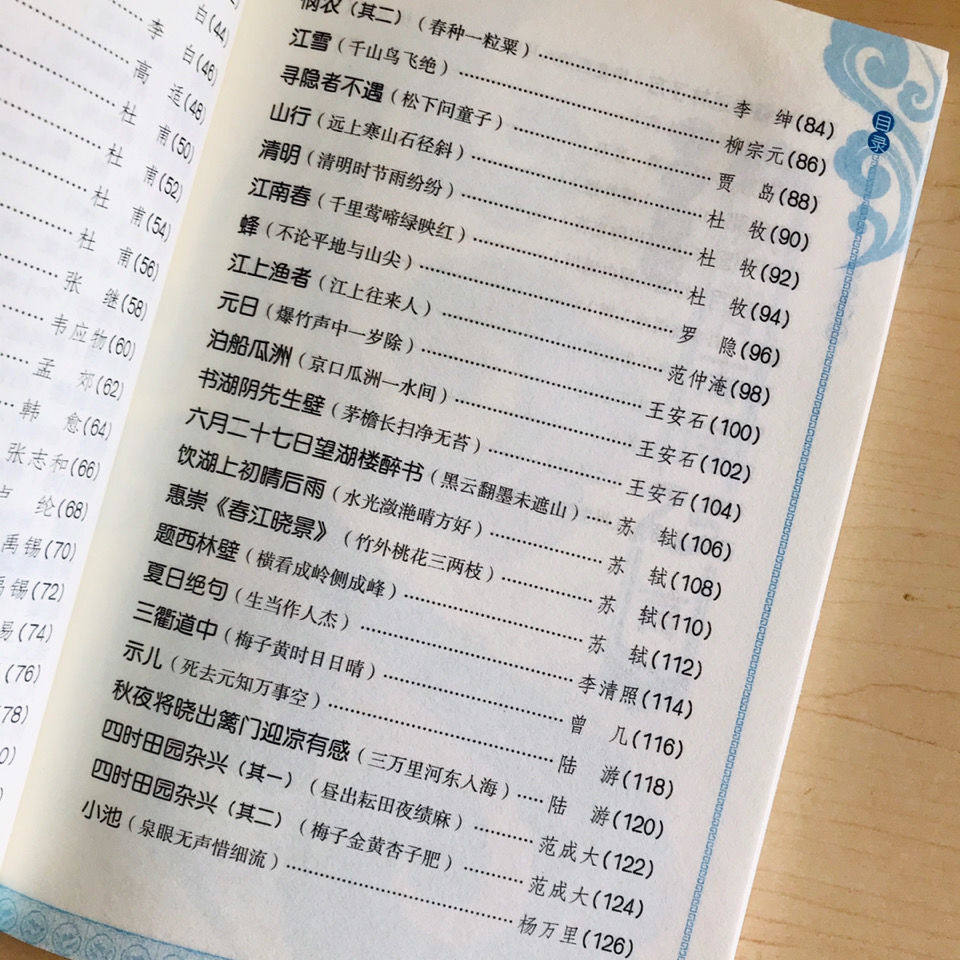 白(44)
李 白(46)
高 适(48)
杜 甫(50)
杜 甫(52)
杜 甫(54)
杜 甫(56)
张 继(58)
韦应物(60)
孟 郊(62)
韩 愈(64)
张志和(66)
纶(68)
禹锡(70)
锡(72)
易(74)
(76)
78)
0)
目录
悯农（其二）（春种一粒粟）……李 绅(84)
江雪（千山鸟飞绝）……柳宗元(86)
寻隐者不遇（松下问童子）……贾 岛(88)
山行（远上寒山石径斜）……杜 牧(90)
清明（清明时节雨纷纷）……杜 牧(92)
江南春（千里莺啼绿映红）……杜 牧(94)
蜂（不论平地与山尖）……罗 隐(96)
江上渔者（江上往来人）……范仲淹(98)
元日（爆竹声中一岁除）……王安石(100)
泊船瓜洲（京口瓜洲一水间）……王安石(102)
书湖阴先生壁（茅檐长扫净无苔）……王安石(104)
六月二十七日望湖楼醉书（黑云翻墨未遮山）……苏 轼(106)
饮湖上初晴后雨（水光潋滟晴方好）……苏 轼(108)
惠崇《春江晓景》（竹外桃花三两枝）……苏 轼(110)
题西林壁（横看成岭侧成峰）……苏 轼(112)
夏日绝句（生当作人杰）……李清照(114)
三衢道中（梅子黄时日日晴）……曾 几(116)
示儿（死去元知万事空）……陆 游(118)
秋夜将晓出篱门迎凉有感（三万里河东入海）……陆 游(120)
四时田园杂兴（其一）（昼出耘田夜绩麻）……范成大(122)
四时田园杂兴（其二）（梅子金黄杏子肥）……范成大(124)
小池（泉眼无声惜细流）……杨万里(126)